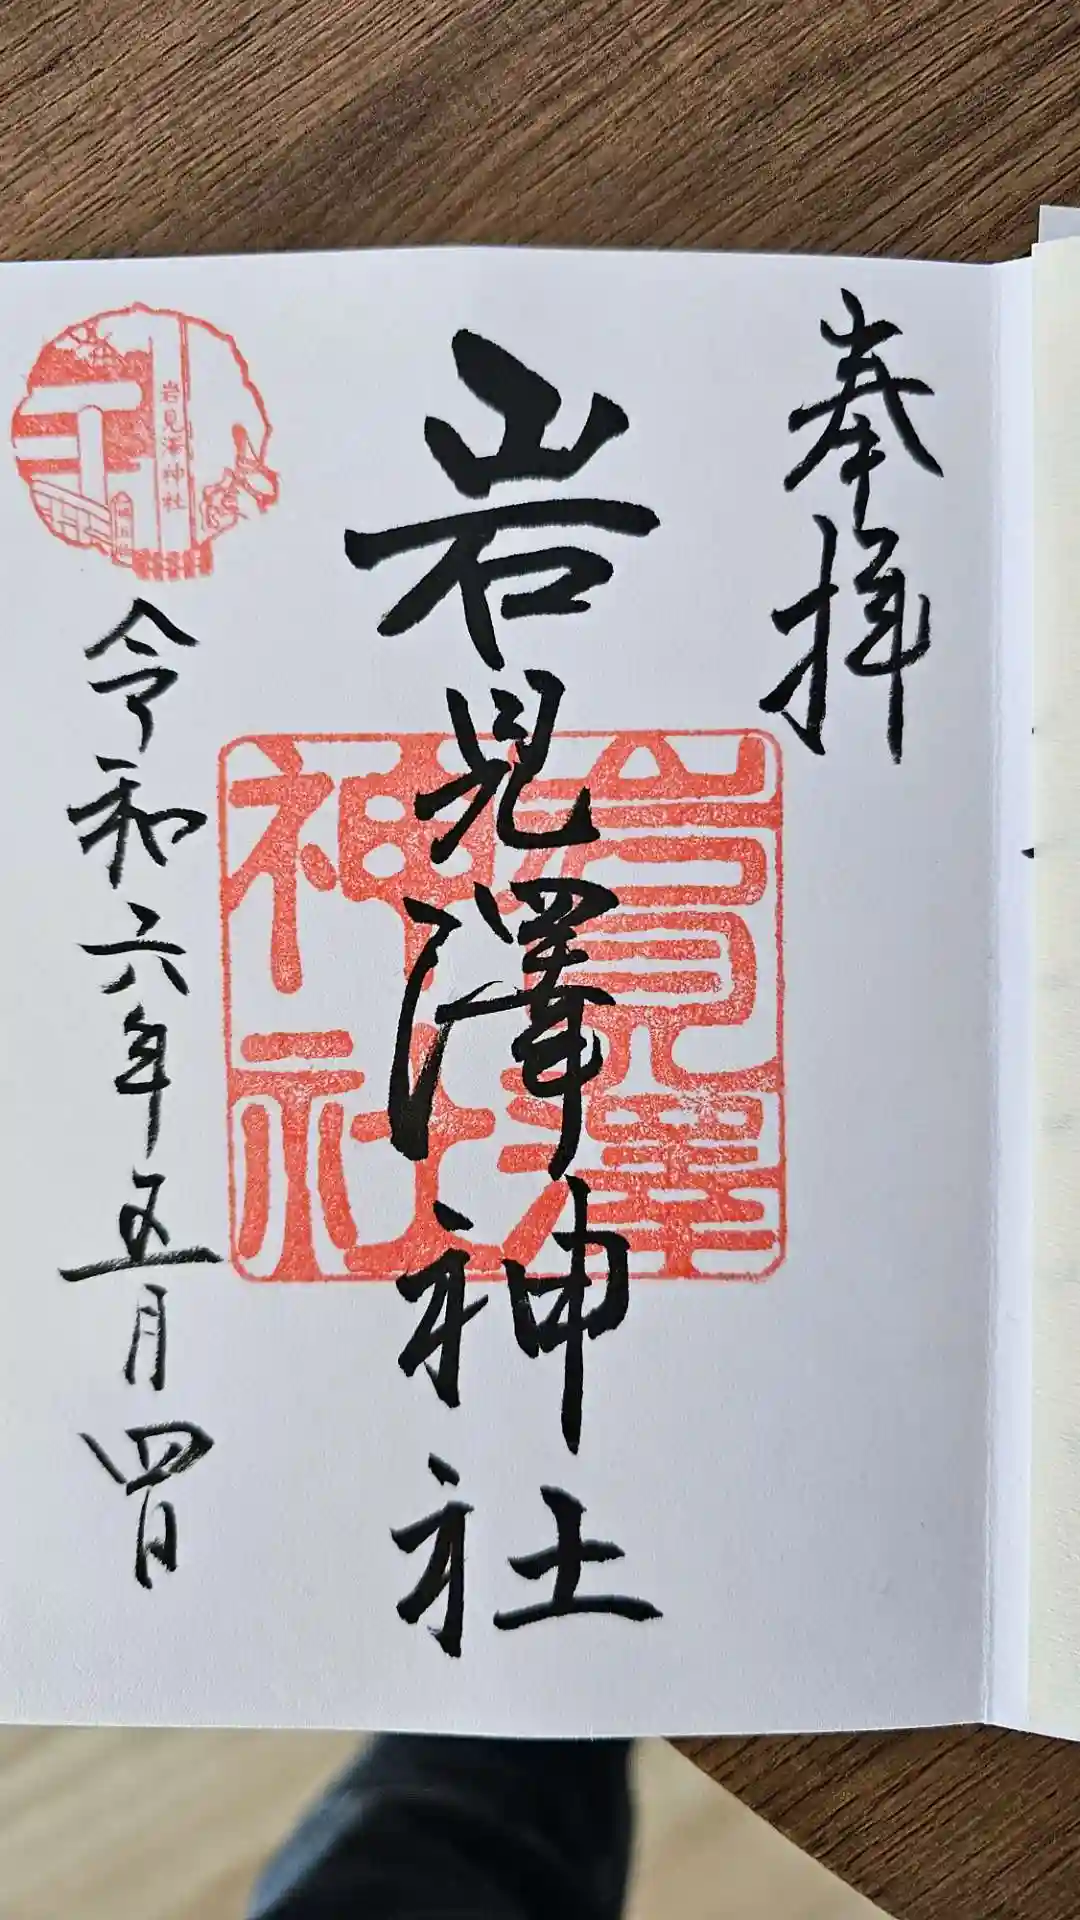 奉拝
岩見澤神社
岩見澤神社
岩見澤神社
令和六年五月四日